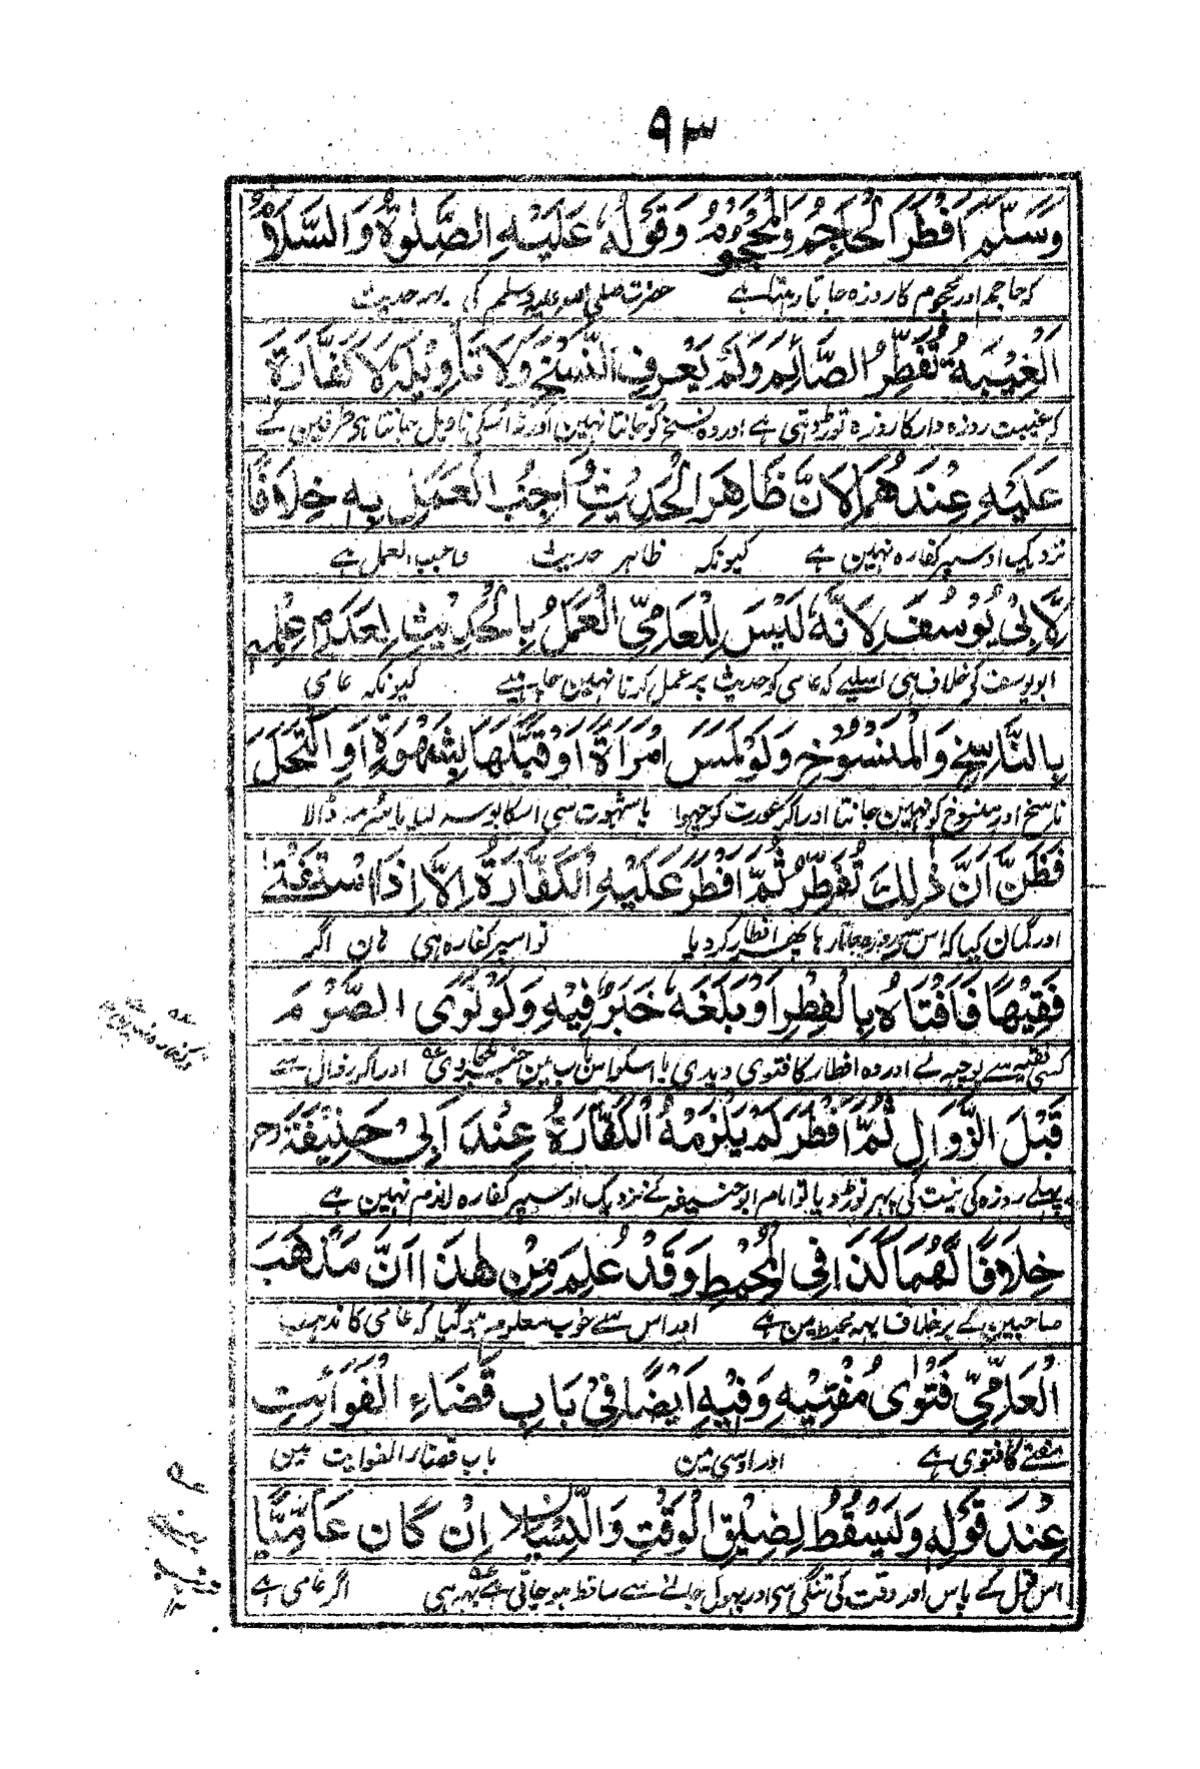 ۹۳
وَسَلَّمَ اَفْطَرَ الْحَاجِمُ وَالْمَحْجُوْمُ وَقَوْلُهٗ عَلَيْهِ الصَّلٰوةُ وَالسَّلَامُ
کہ حاجم اور محجوم کا روزہ جاتا رہتا ہے حضرت صلی اللہ علیہ وسلم کی یہہ حدیث
اَلْغِيْبَةُ تُفَطِّرُ الصَّائِمَ وَلَمْ يَعْرِفِ النَّسْخَ وَلَا تَأْوِيْلَهٗ لَا كَفَّارَةَ
کہ غیبت روزہ دار کا روزہ توڑ دیتی ہے اور وہ نسخ کو جانتا نہین اور نہ اسکی تاویل جانتا ہو طرفین کے
عَلَيْهِ عِنْدَهُمَا لِاَنَّ ظَاهِرَ الْحَدِيْثِ وَاجِبُ الْعَمَلِ بِهٖ خِلَافًا
نزدیک اوسپر کفارہ نہین ہے کیونکہ ظاہر حدیث واجب العمل ہے
لِّاَبِيْ يُوْسُفَ لِاَنَّهٗ لَيْسَ لِلْعَامِّيِّ الْعَمَلُ بِالْحَدِيْثِ لِعَدَمِ عِلْمِهٖ
ابو یوسف کی خلاف ہی اسلیے کہ عامی کو حدیث پر عمل کرنا نہین چاہیے کیونکہ عامی
بِالنَّاسِخِ وَالْمَنْسُوْخِ وَلَوْ لَمَسَ امْرَاَةً اَوْ قَبَّلَهَا بِشَهْوَةٍ اَوِ اكْتَحَلَ
ناسخ اور منسوخ کو نہین جانتا اور اگر عورت کو چہوا یا شہوت سی اسکا بوسہ لیا یا سرمہ ڈالا
فَظَنَّ اَنَّ ذٰلِكَ تُفَطِّرُ ثُمَّ اَفْطَرَ عَلَيْهِ الْكَفَّارَةُ اِلَّا اِذَا اسْتَفْتٰى
اور گمان کیا کہ اس سے روزہ جاتا رہا پھر افطار کر دیا تو اسپر کفارہ ہی ہان اگر
فَقِيْهًا فَاَفْتَاهُ بِالْفِطْرِ اَوْ بَلَغَهٗ خَبَرٌ فِيْهِ وَلَوْ نَوَى الصَّوْمَ
کسی فقیہ سے پوچہہ لے اور وہ افطار کا فتوی دیدی یا اسکو اس باب مین خبر اور اگر زوال سے
قَبْلَ الزَّوَالِ ثُمَّ اَفْطَرَ لَمْ يَلْزَمْهُ الْكَفَّارَةُ عِنْدَ اَبِيْ حَنِيْفَةَ رح
پہلے روزہ کی نیت کی پہر توڑ دیا تو امام ابو حنیفہ کے نزدیک اوسپر کفارہ لازم نہین ہے
خِلَافًا لَّهُمَا كَذَا فِي الْمُحِيْطِ وَقَدْ عُلِمَ مِنْ هٰذَا اَنَّ مَذْهَبَ
صاحبین کے برخلاف یہہ محیط مین ہے اور اس سے خوب معلوم ہو گیا کہ عامی کا مذہب
الْعَامِّيِّ فَتْوٰى مُفْتِيْهِ وَفِيْهِ اَيْضًا فِيْ بَابِ قَضَاءِ الْفَوَائِتِ
مفتے کا فتوی ہے اور اوسی مین باب قضاء الفوایت مین
عِنْدَ قَوْلِهٖ وَيَسْقُطُ لِضِيْقِ الْوَقْتِ وَالنِّسْيَانِ اِنْ كَانَ عَامِّيًّا
اس قول کے پاس اور وقت کی تنگی سی اور بہول جانے سے ساقط ہو جاتی ہے یہہ ہی اگر عامی ہے